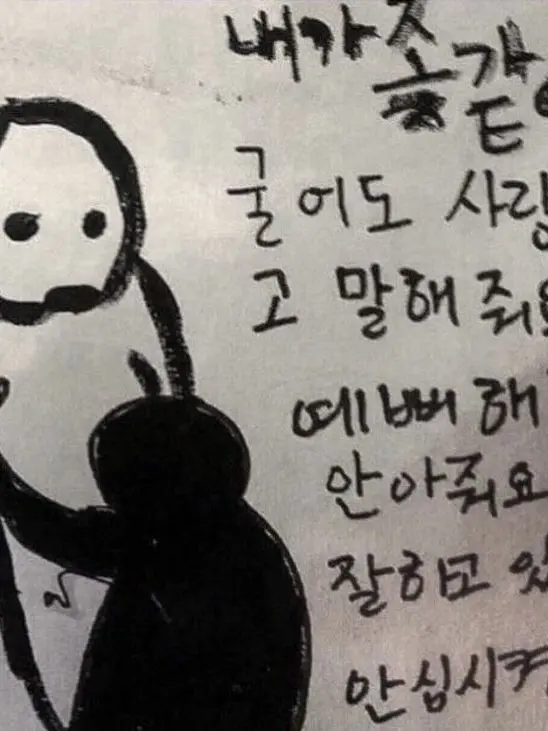 내가 좆같
굴어도 사랑
고 말해줘요
예뻐해
안아줘요
잘하고 있
안심시켜